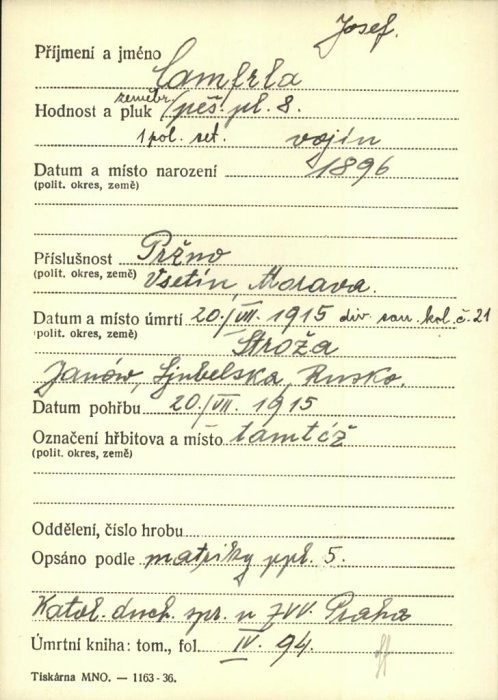 Josef.
Příjmení a jméno Camfrla
zeměbr.
Hodnost a pluk pěš. pl. 8.
1 pol. set. vojín
Datum a místo narození 1896
(polit. okres, země)
Příslušnost Pržno
(polit. okres, země) Vsetín, Morava.
Datum a místo úmrtí 20./VII. 1915 div. san. kol. č. 21
(polit. okres, země) Stroža
Janów, Ljubelska, Rusko.
Datum pohřbu 20./VII. 1915
Označení hřbitova a místo tamtéž
(polit. okres, země)
Oddělení, číslo hrobu
Opsáno podle matriky ppl. 5.
Katol. duch. spr. u ZVV. Praha
Úmrtní kniha: tom., fol. IV. 94.
Tiskárna MNO. — 1163-36.